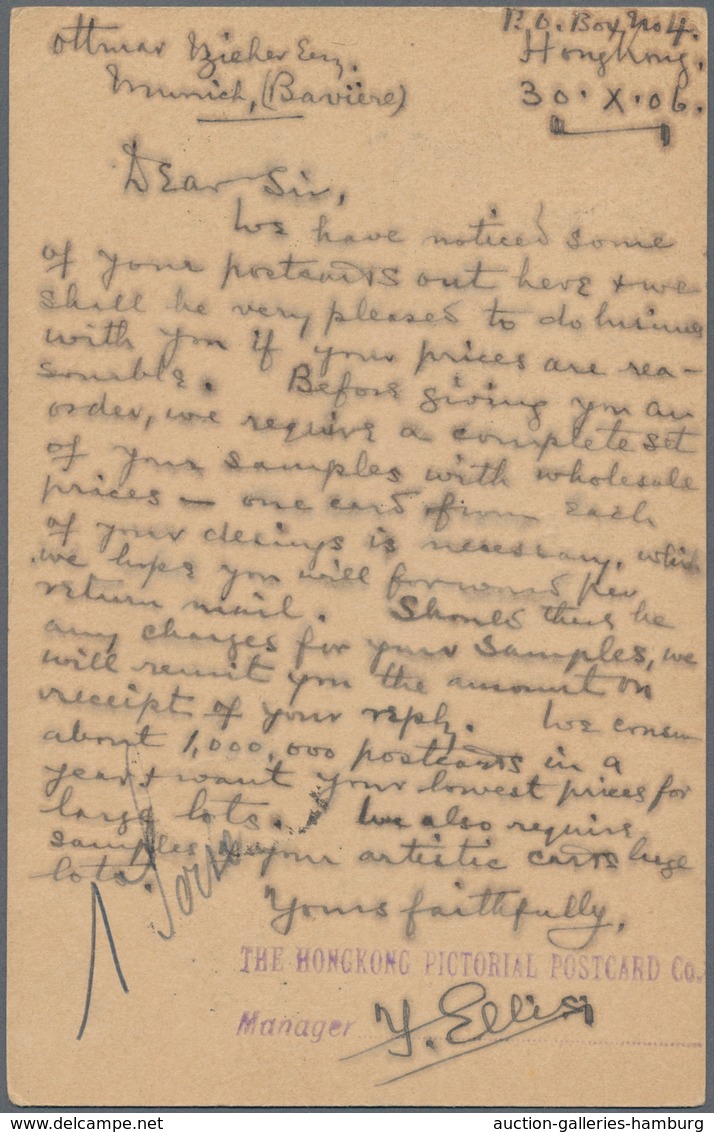 P.O. Box, No 4.
Ottmar Zieher Esq.
Hongkong,
Munich, (Bavière)
30. X. 06.
Dear Sir,
We have noticed some
of your postcards out here & we
shall be very pleased to do business
with you if your prices are rea-
sonable. Before giving you an
order, we require a complete set
of your samples with wholesale
prices — one card from each
of your desings is necessary, which
we hope you will forward per
return mail. Should there be
any charges for your samples, we
will remit you the amount on
receipt of your reply. We consum
about 1,000,000 postcards in a
year & want your lowest prices for
large lots. We also require
samples of your artistic cards huge
lots.
Yours faithfully,
THE HONGKONG PICTORIAL POSTCARD Co.
Manager Y. Ellis
auction-galleries-hamburg